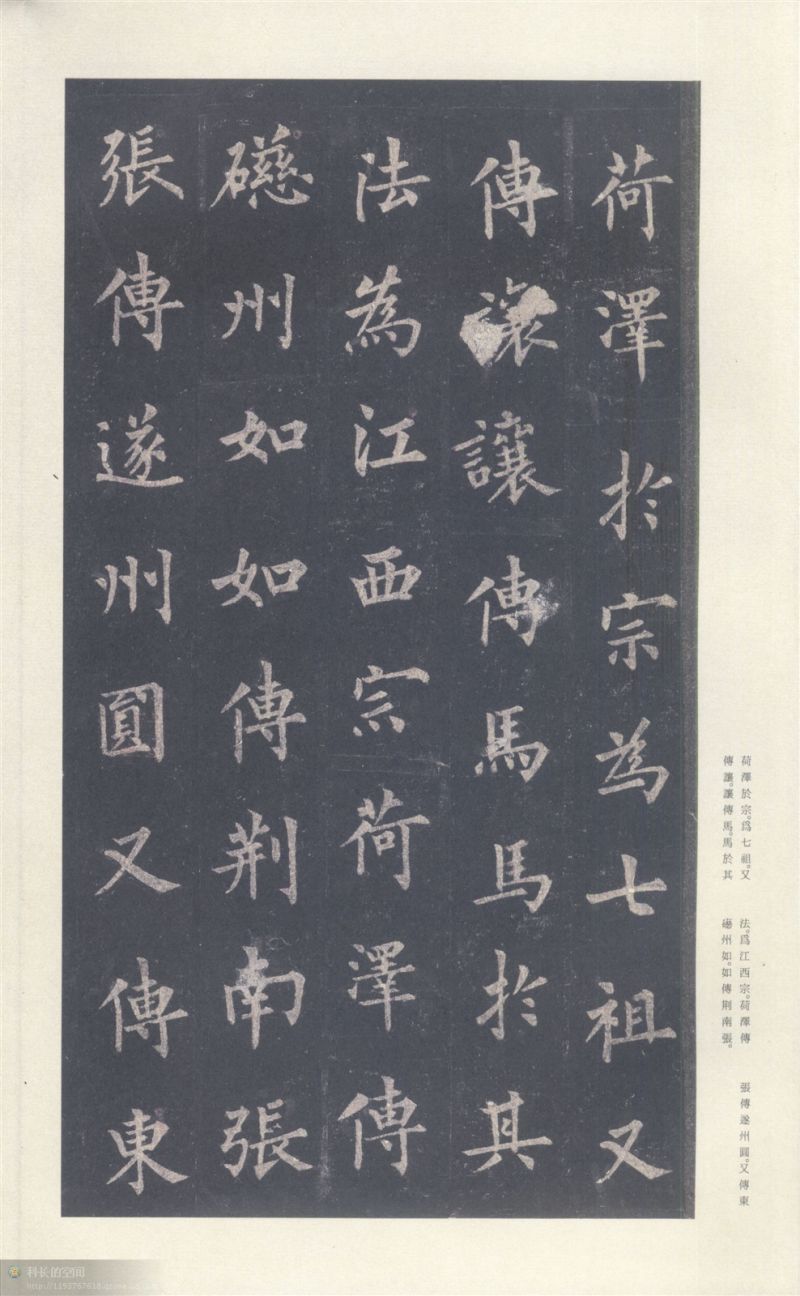 荷澤於宗為七祖又
傳讓讓傳馬馬於其
法為江西宗荷澤傳
礠州如如傳荆南張
張傳遂州圓又傳東
荷澤於宗。爲七祖。又
傳讓。讓傳馬。馬於其
法。爲江西宗。荷澤傳
礠州如。如傳荆南張。
張傳遂州圓。又傳東
科长的空间